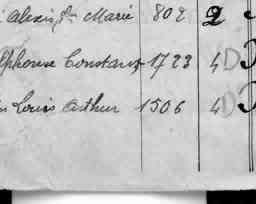 Alexis, Ste Marie 802 2
lphonse Constant 1723 4D
Louis Arthur 1506 4D